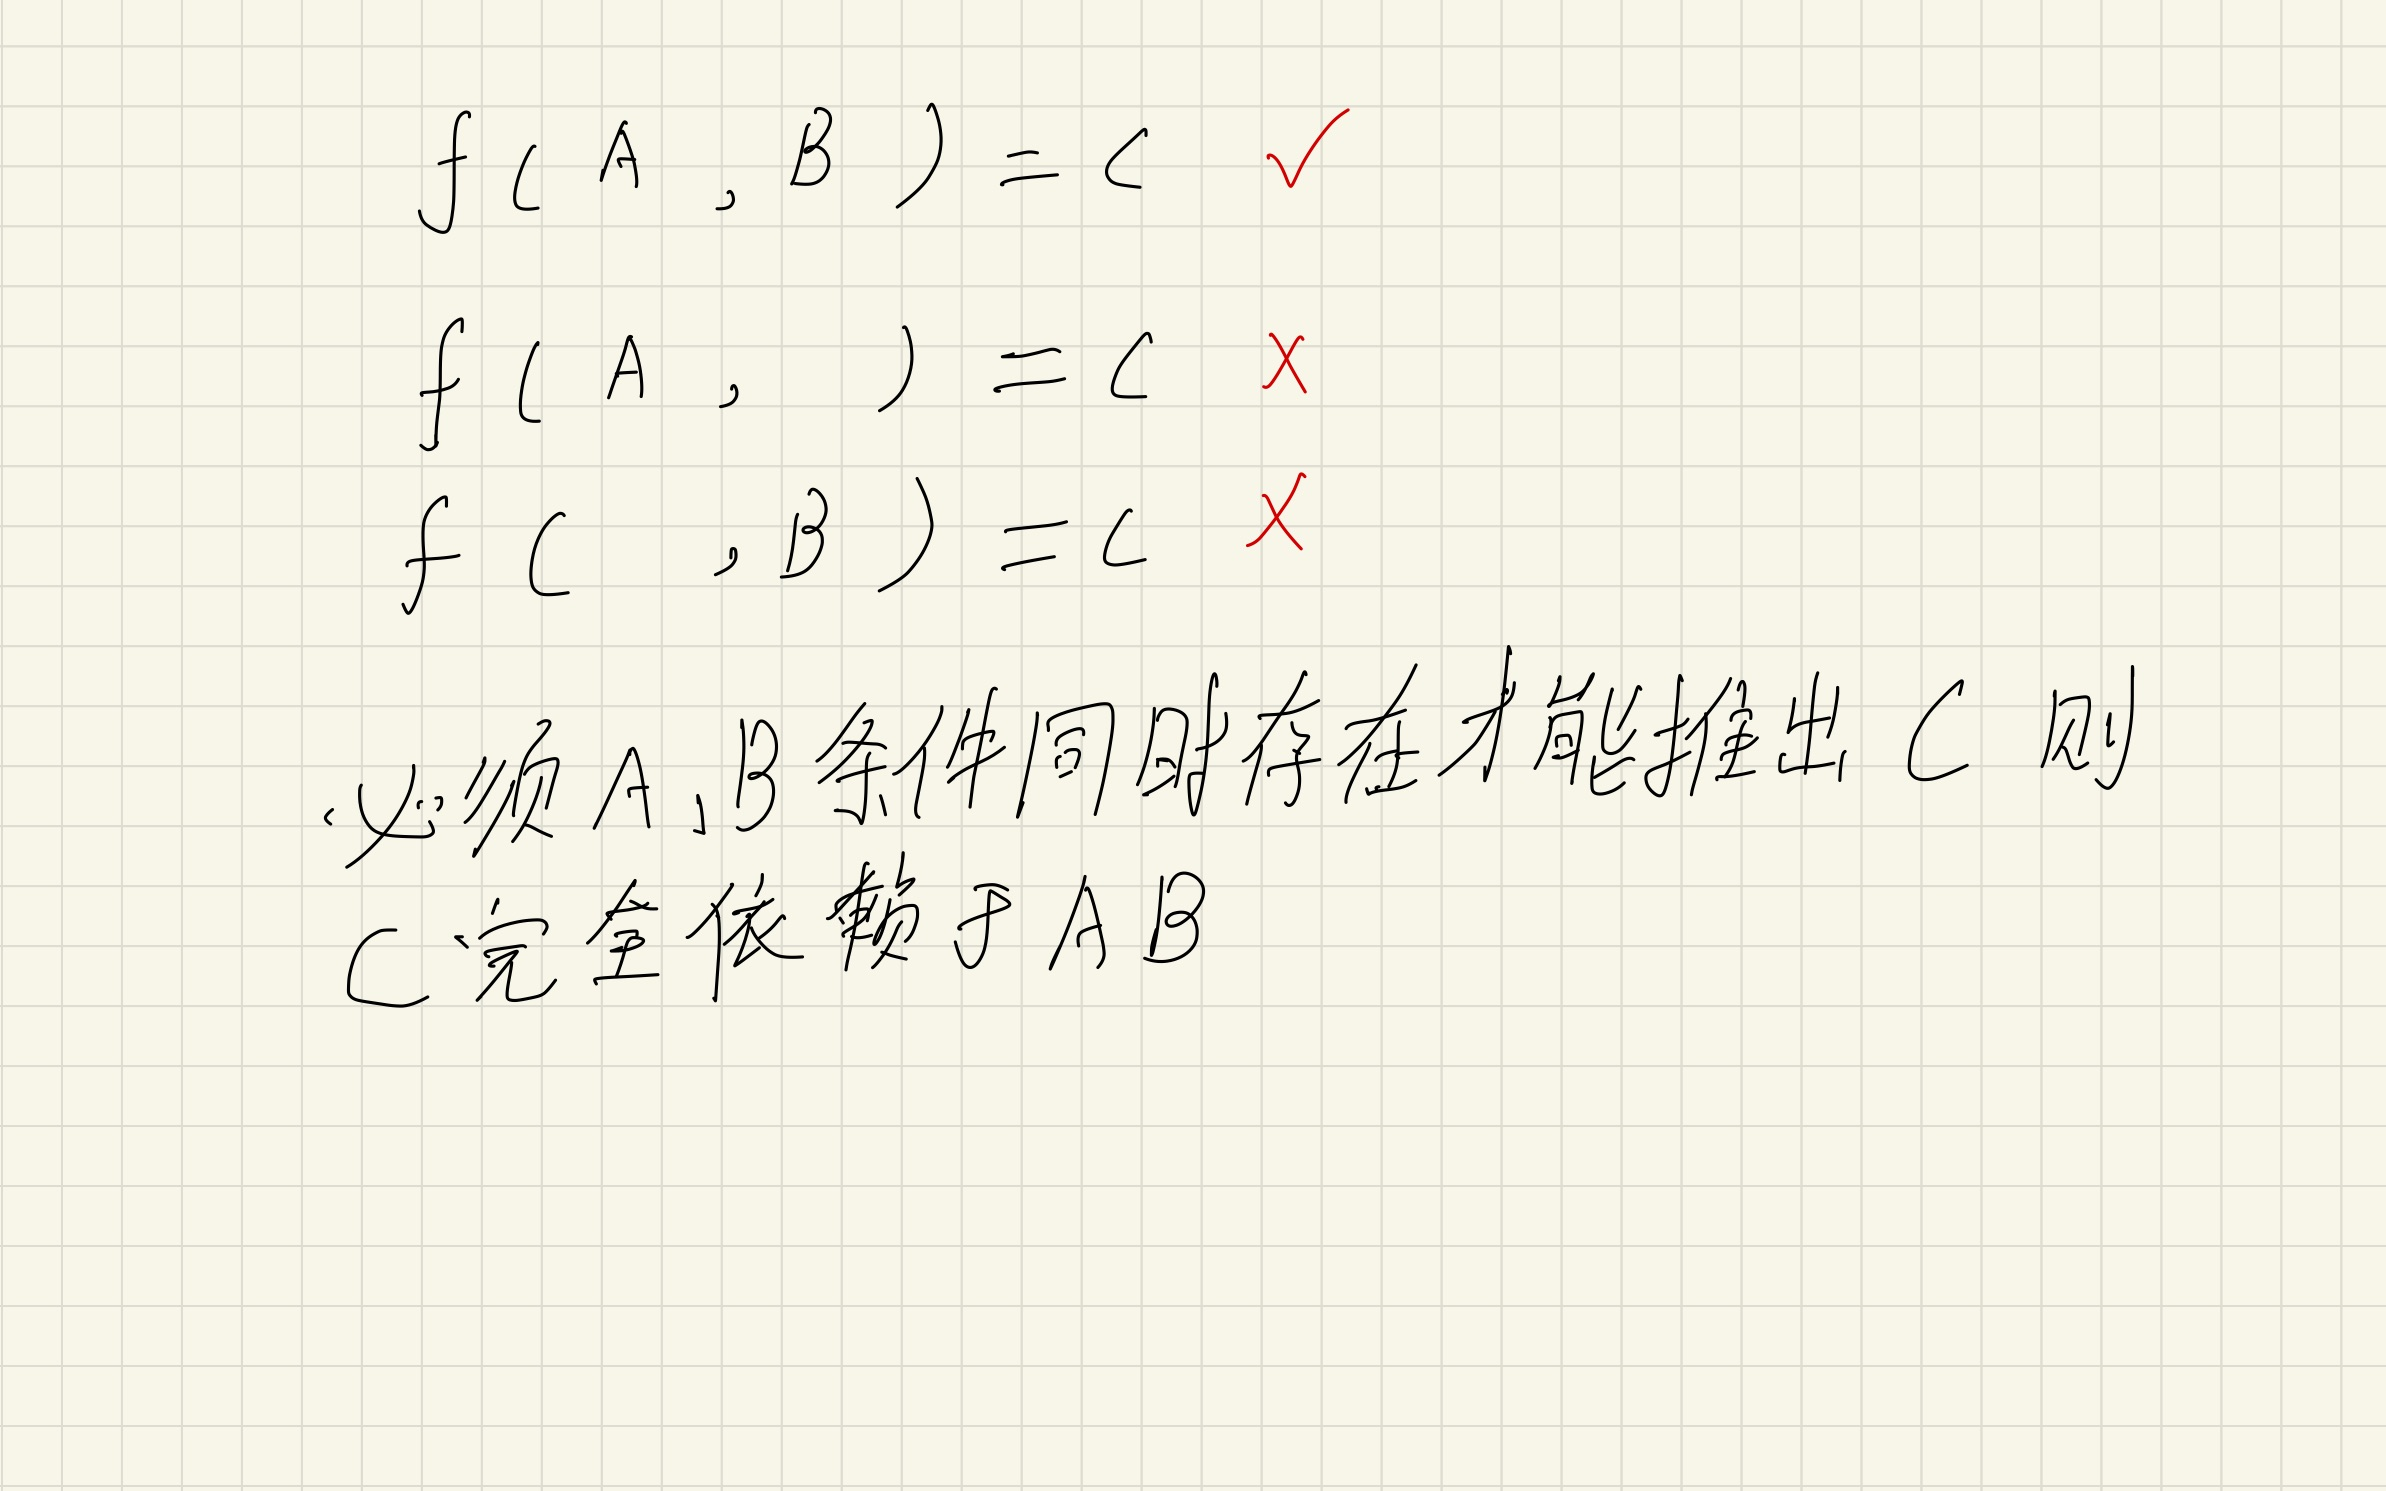 f(A,B)=C ✓
f(A, )=C ✗
f( ,B)=C ✗
必须A,B条件同时存在才能推出C 则
C完全依赖于AB